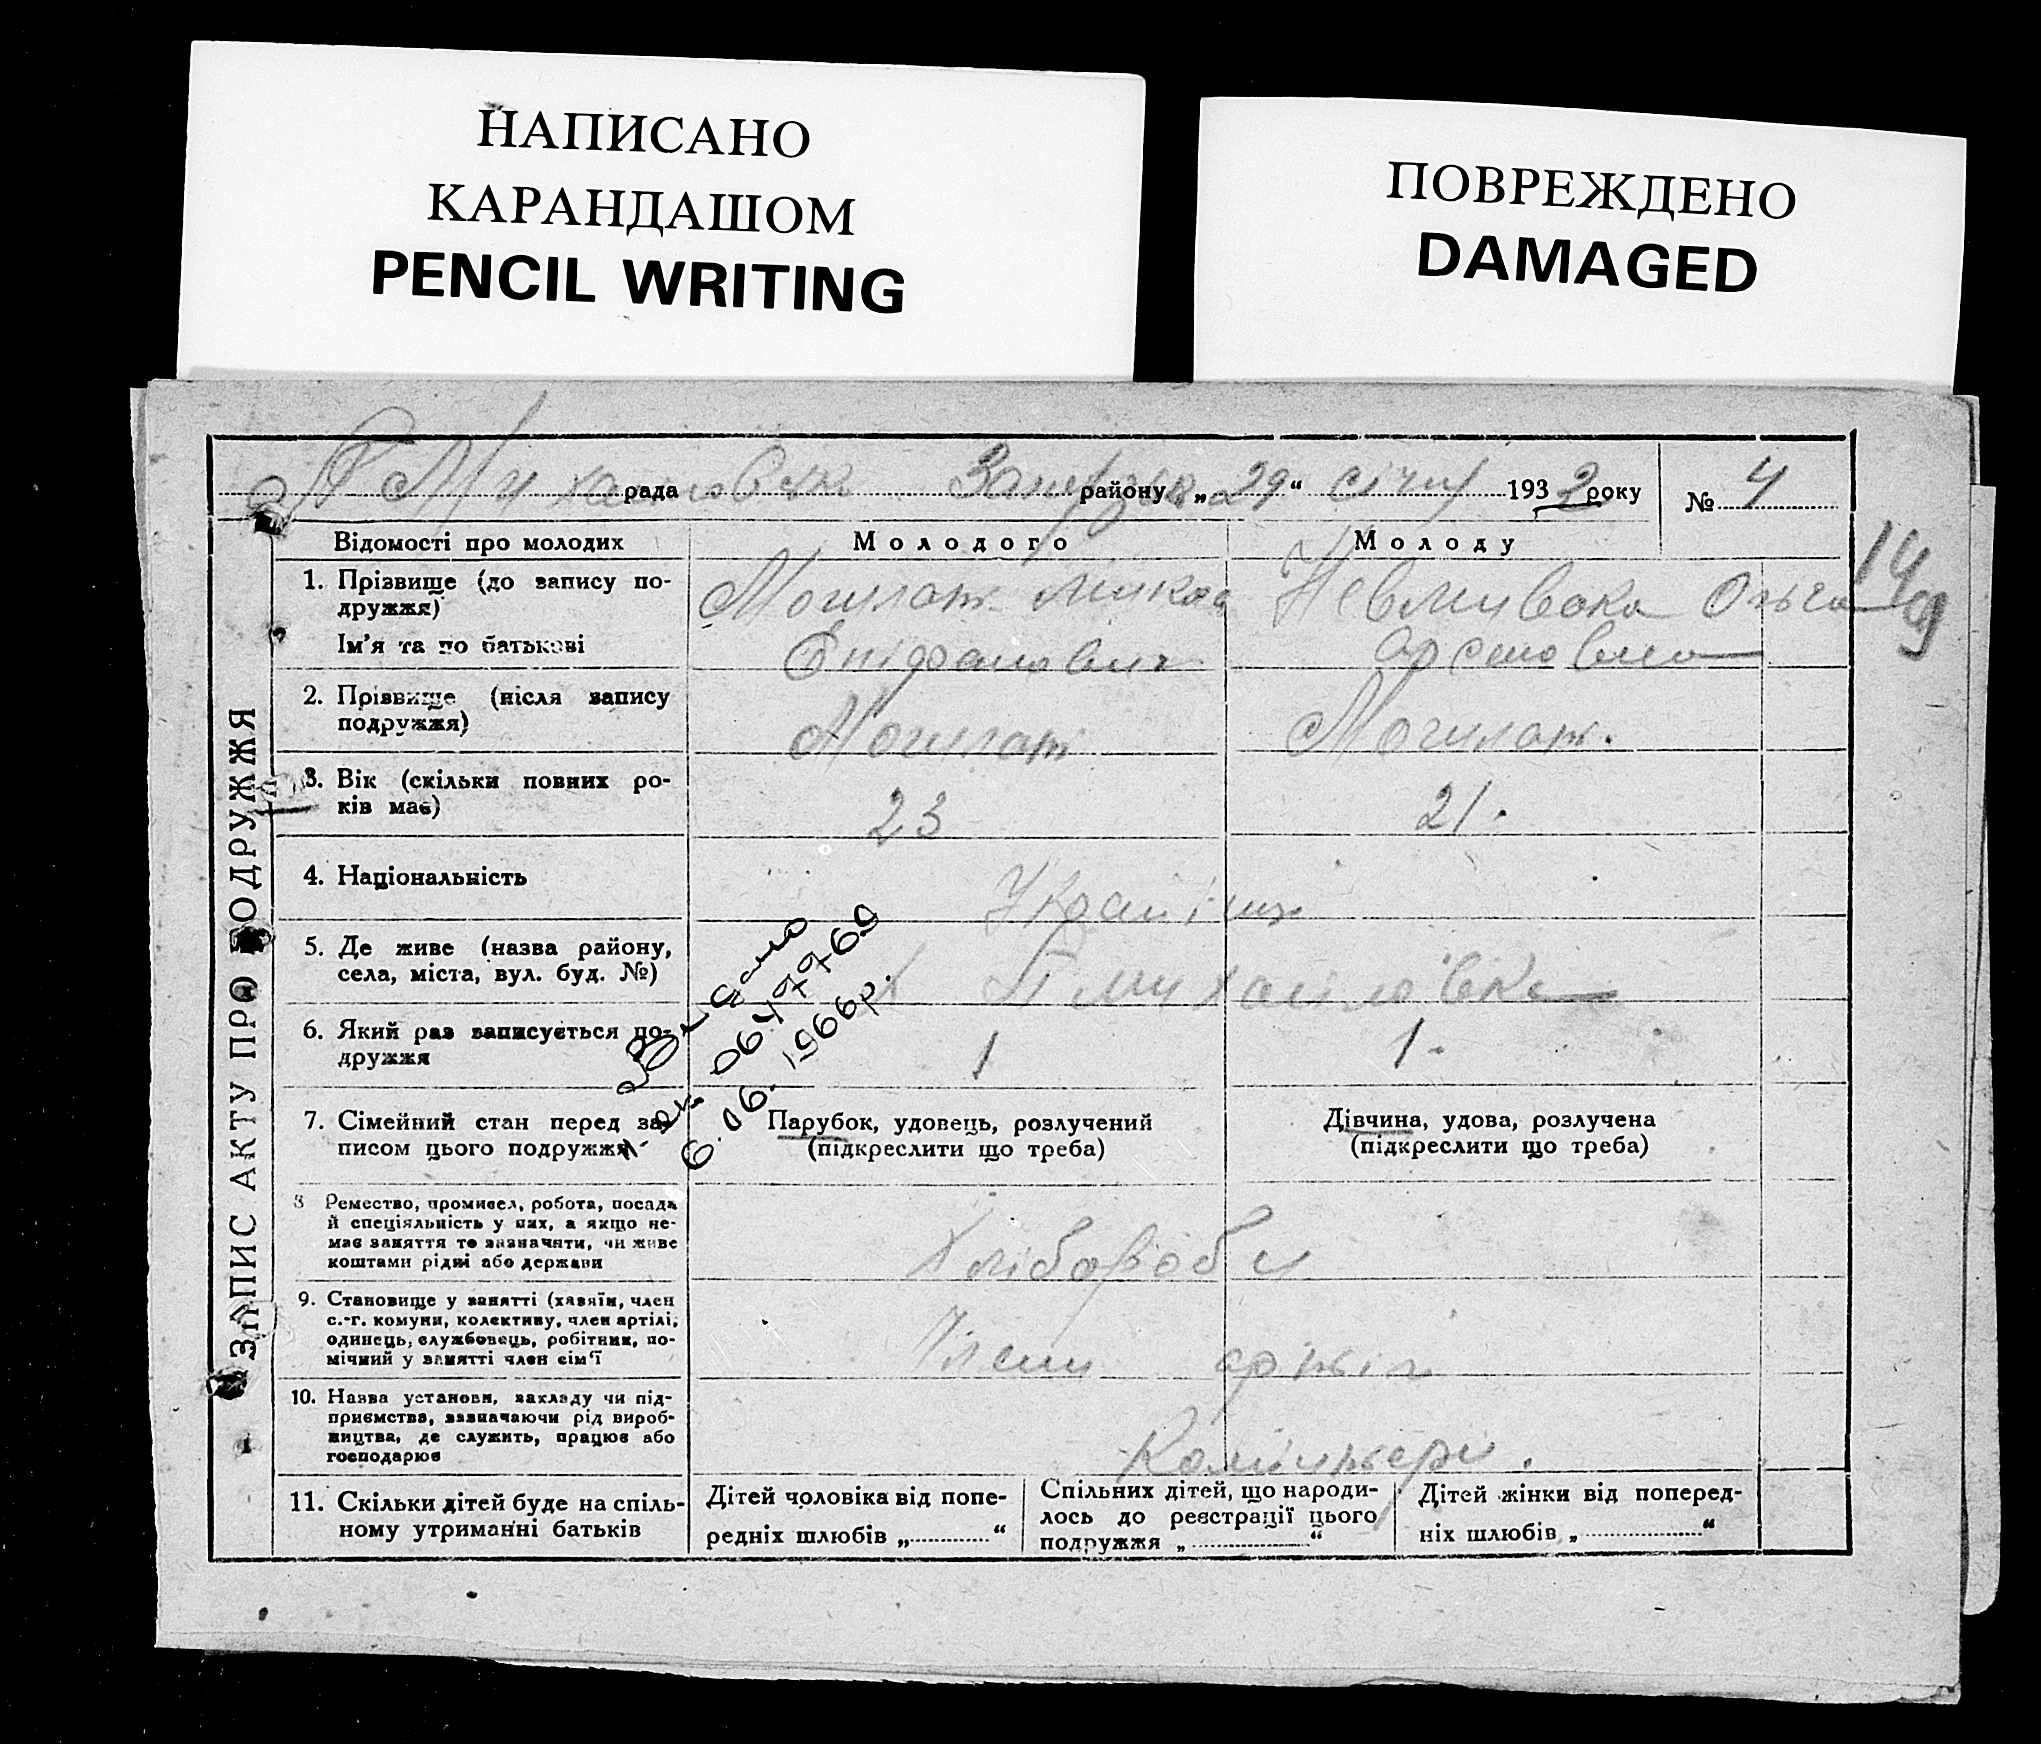 НАПИСАНО
КАРАНДАШОМ
PENCIL WRITING
ПОВРЕЖДЕНО
DAMAGED
рада району „29“ січня 1932 року № 4
149
ЗАПИС АКТУ ПРО ПОДРУЖЖЯ
Відомості про молодих Молодого Молоду
1. Прізвище (до запису по-
дружжя)
Ім'я та по батькові
Могилат Микола
Єпіфанович
Невмивака Ольга
Арсеновна
2. Прізвище (після запису
подружжя)
Могилат Могилат.
3. Вік (скільки повних ро-
ків має)
23 21.
4. Національність
Українці
5. Де живе (назва району,
села, міста, вул. буд. №)
П Михайлівка
6. Який раз записується по-
дружжя
1 1.
7. Сімейний стан перед за-
писом цього подружжя
Парубок, удовець, розлучений
(підкреслити що треба)
Дівчина, удова, розлучена
(підкреслити що треба)
8 Ремество, промисел, робота, посада
й спеціяльність у них, а якщо не-
має заняття то зазначити, чи живе
коштами рідні або держави
Хлібороби
9. Становище у занятті (хазяїн, член
с.-г. комуни, колективу, член артілі,
одинець, службовець, робітник, по-
мічний у занятті член сім'ї
Члени артіл
10. Назва установи, закладу чи під-
приємства, зазначаючи рід вироб-
ництва, де служить, працює або
господарює
11. Скільки дітей буде на спіль-
ному утриманні батьків
Дітей чоловіка від попе-
редніх шлюбів „ “
Спільних дітей, що народи-
лось до реєстрації цього
подружжя „ “
Дітей жінки від поперед-
ніх шлюбів „ “
Видано
0647769
6.06.1966р.